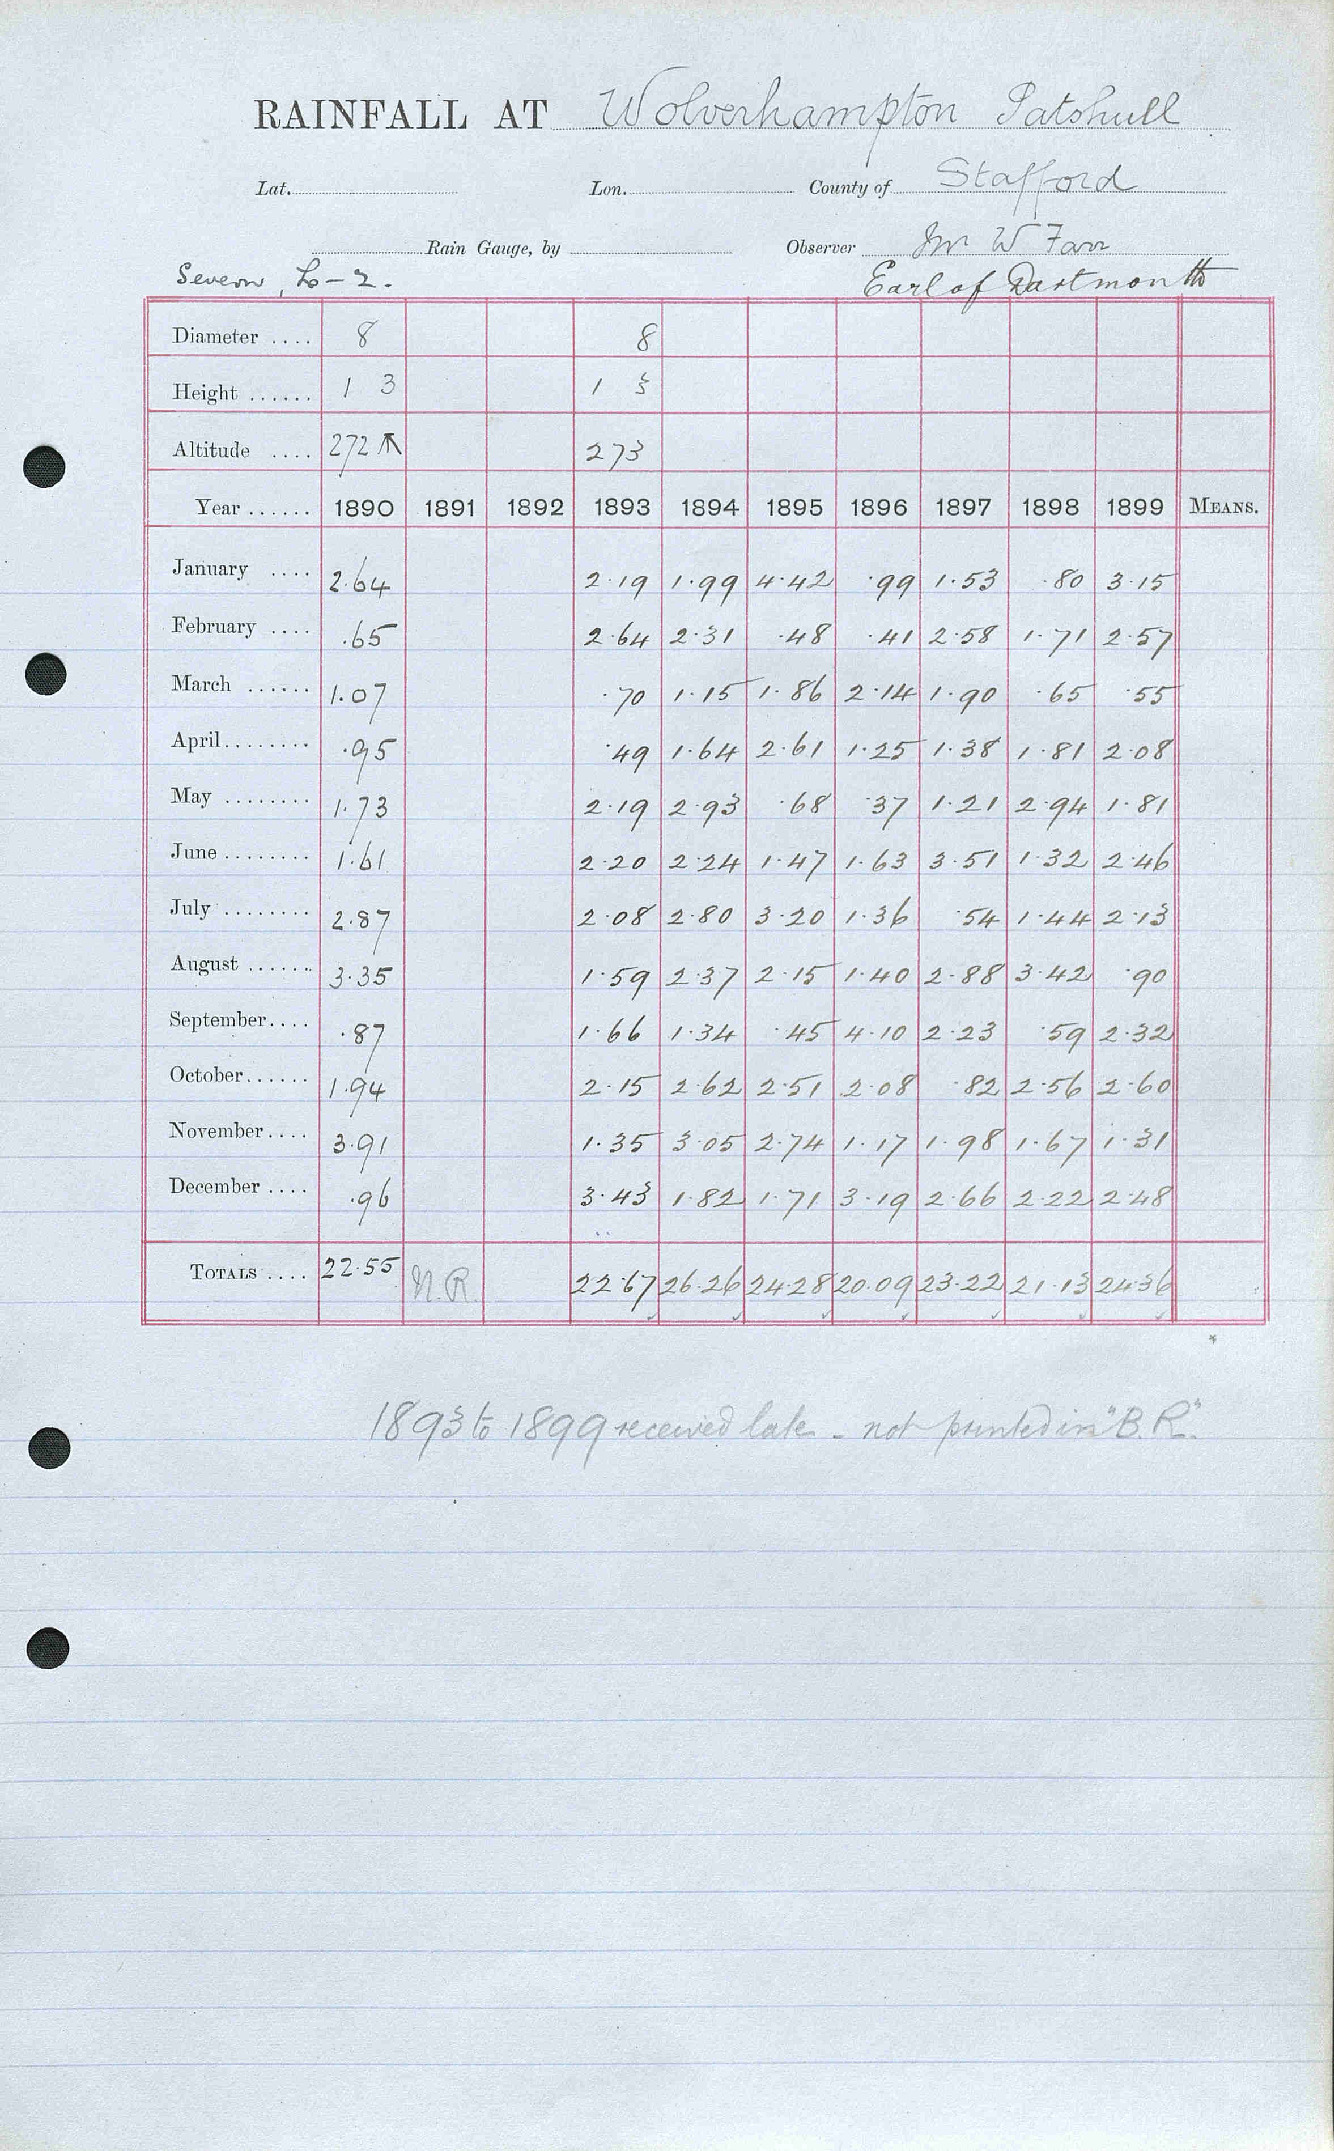 RAINFALL AT Wolverhampton Patshull
Lat. Lon. County of Stafford
Rain Gauge, by Observer Mr W Farr
Severn, L-2. Earl of Dartmouth
Diameter .... 8 8
Height ...... 1 3 1 3
Altitude .... 272 273
Year ...... 1890 1891 1892 1893 1894 1895 1896 1897 1898 1899 MEANS.
January .... 2.64 2.19 1.99 4.42 .99 1.53 .80 3.15
February .... .65 2.64 2.31 .48 .41 2.58 1.71 2.57
March ...... 1.07 .70 1.15 1.86 2.14 1.90 .65 .55
April........ .95 .49 1.64 2.61 1.25 1.38 1.81 2.08
May ........ 1.73 2.19 2.93 .68 .37 1.21 2.94 1.81
June ........ 1.61 2.20 2.24 1.47 1.63 3.51 1.32 2.46
July ........ 2.87 2.08 2.80 3.20 1.36 .54 1.44 2.13
August ...... 3.35 1.59 2.37 2.15 1.40 2.88 3.42 .90
September.... .87 1.66 1.34 .45 4.10 2.23 .59 2.32
October...... 1.94 2.15 2.62 2.51 2.08 .82 2.56 2.60
November.... 3.91 1.35 3.05 2.74 1.17 1.98 1.67 1.31
December .... .96 3.43 1.82 1.71 3.19 2.66 2.22 2.48
TOTALS .... 22.55 N.R. 22.67 26.26 24.28 20.09 23.22 21.13 24.36
*
1893 to 1899 received late - not printed in "B.R."